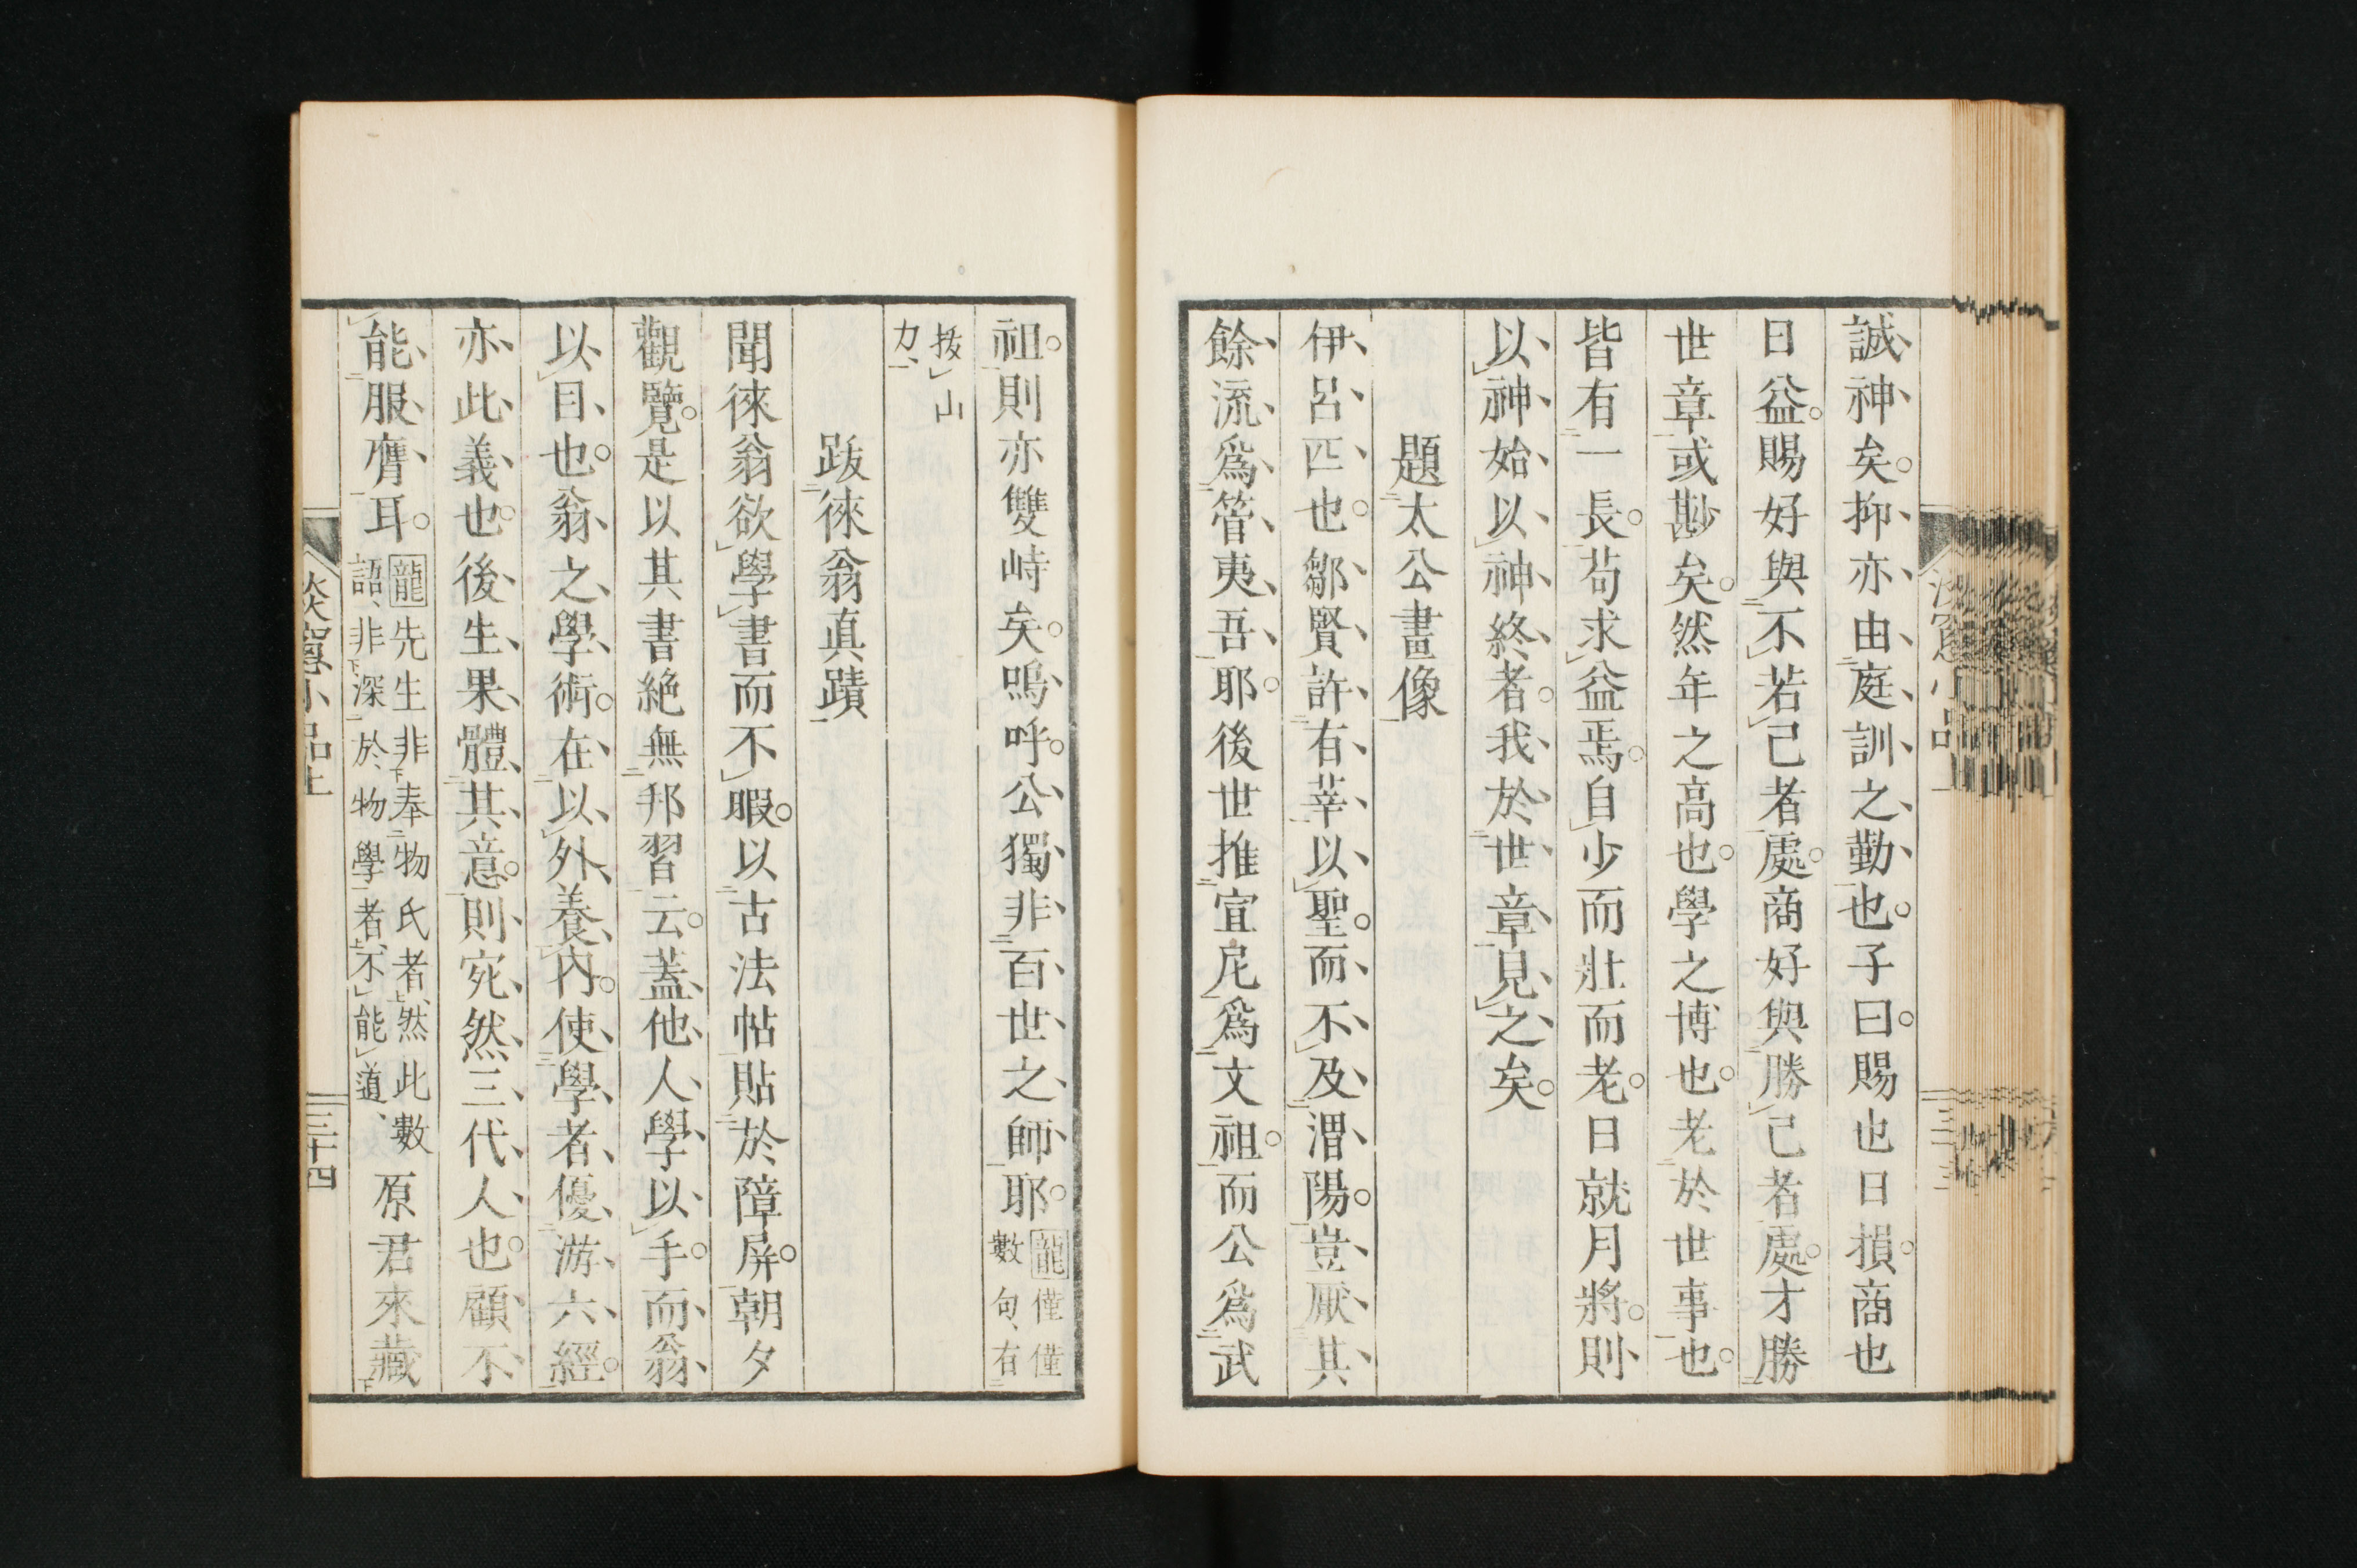 誠神矣。抑亦由庭訓之勤也。子曰。賜也日損。商也
日益。賜好與不若己者處。商好與勝己者處。才勝
世章或尠矣。然年之高也。學之博也。老於世事也。
皆有一長。苟求益焉。自少而壯而老。日就月將。則
以神始以神終者。我於世章見之矣。
題太公畫像
伊呂匹也。鄒賢許有莘以聖。而不及渭陽。豈厭其
餘流爲管夷吾耶。後世推宣尼爲文祖。而公爲武
祖。則亦雙峙矣。嗚呼。公獨非百世之師耶。龍僅僅
數句、有
拔山
力、
跋徠翁眞蹟
聞徠翁欲學書而不暇。以古法帖貼於障屏。朝夕
觀覽。是以其書絶無邦習云。蓋他人學以手。而翁
以目也。翁之學術。在以外養內。使學者優游六經。
亦此義也。後生果體其意。則宛然三代人也。顧不
能服膺耳。龍先生非奉物氏者、然此數
語、非深於物學者、不能道、
原君來藏
淡窻小品上
三十四